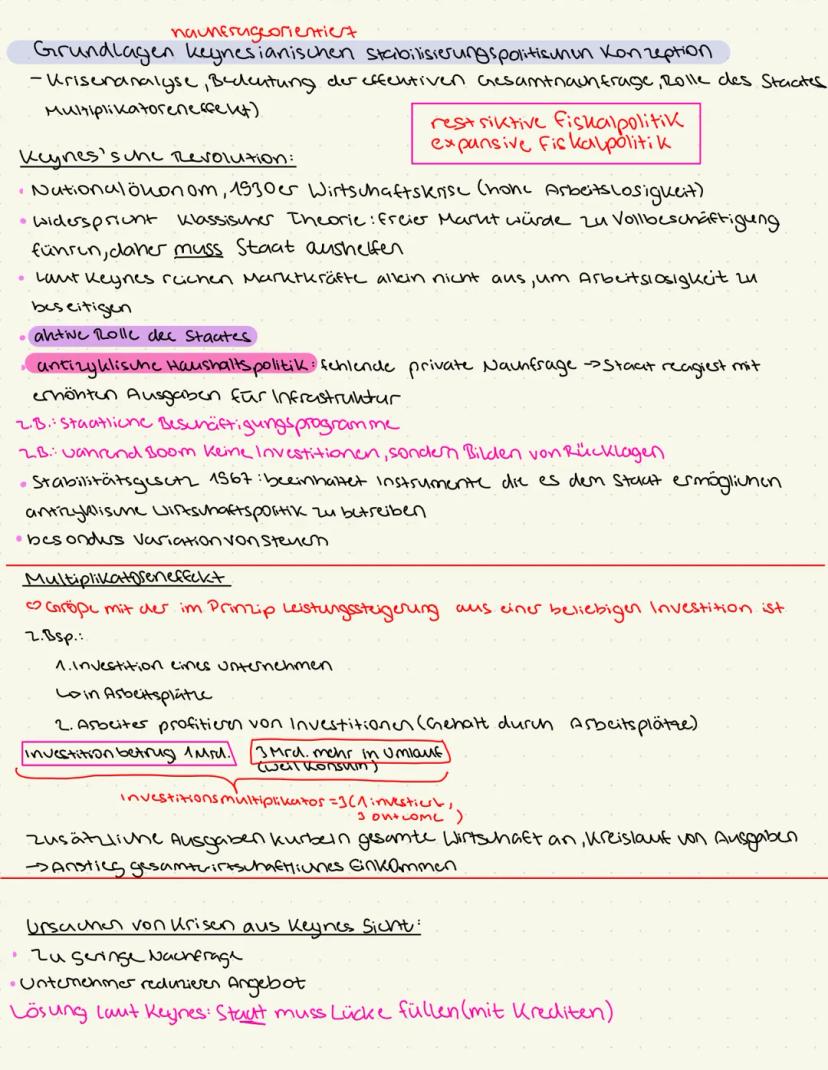 nachfrageorientiert
Grundlagen keynesianischen stabilisierungspolitischen Konzeption
- Krisenanalyse, Bedeutung der effektiven Gesamtnachfrage, Rolle des Staates
Multiplikatoreneffekt)
restriktive Fiskalpolitik
expansive Fiskalpolitik
Keynes'sche Revolution:
• Nationalökonom, 1930er Wirtschaftskrise (hohe Arbeitslosigkeit)
• widerspricht klassischer Theorie: freier Markt würde zu Vollbeschäftigung
führen, daher muss Staat aushelfen
• laut Keynes reichen Marktkräfte allein nicht aus, um Arbeitslosigkeit zu
beseitigen
• aktive Rolle des Staates
• antizyklische Haushaltspolitik: fehlende private Nachfrage → Staat reagiert mit
erhöhten Ausgaben für Infrastruktur
z.B.: staatliche Beschäftigungsprogramme
z.B.: während Boom keine Investitionen, sondern Bilden von Rücklagen
• Stabilitätsgesetz 1967: beeinhaltet Instrumente die es dem Staat ermöglichen
antizyklische Wirtschaftspolitik zu betreiben
• besonders Variation von Steuern
Multiplikatoreneffekt
Größe mit der im Prinzip Leistungssteigerung aus einer beliebigen Investition ist
z.Bsp.:
1. Investition eines Unternehmen
↳ in Arbeitsplätze
2. Arbeiter profitieren von Investitionen (Gehalt durch Arbeitsplätze)
Investition betrug 1 Mrd. 3 Mrd. mehr in Umlauf
(weil Konsum)
Investitionsmultiplikator = 3 (1 investiert,
3 outcome)
zusätzliche Ausgaben kurbeln gesamte Wirtschaft an, Kreislauf von Ausgaben
→ Anstieg gesamtwirtschaftliches Einkommen
Ursachen von Krisen aus Keynes Sicht:
• Zu geringe Nachfrage
• Unternehmer reduzieren Angebot
Lösung laut Keynes: Staat muss Lücke füllen (mit Krediten)